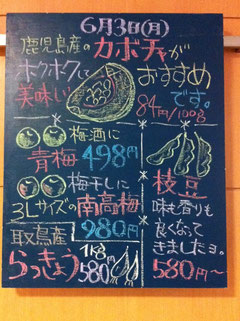 6月3日(月)
鹿児島産の カボチャが
ホクホクして おすすめ
美味しい です。
84円/100g
梅酒に
青梅 498円
梅干しに
3Lサイズの 南高梅
980円
鳥取産
らっきょう 1kg 580円
枝豆
味も香りも
良くなって
きましたョ。
580円～